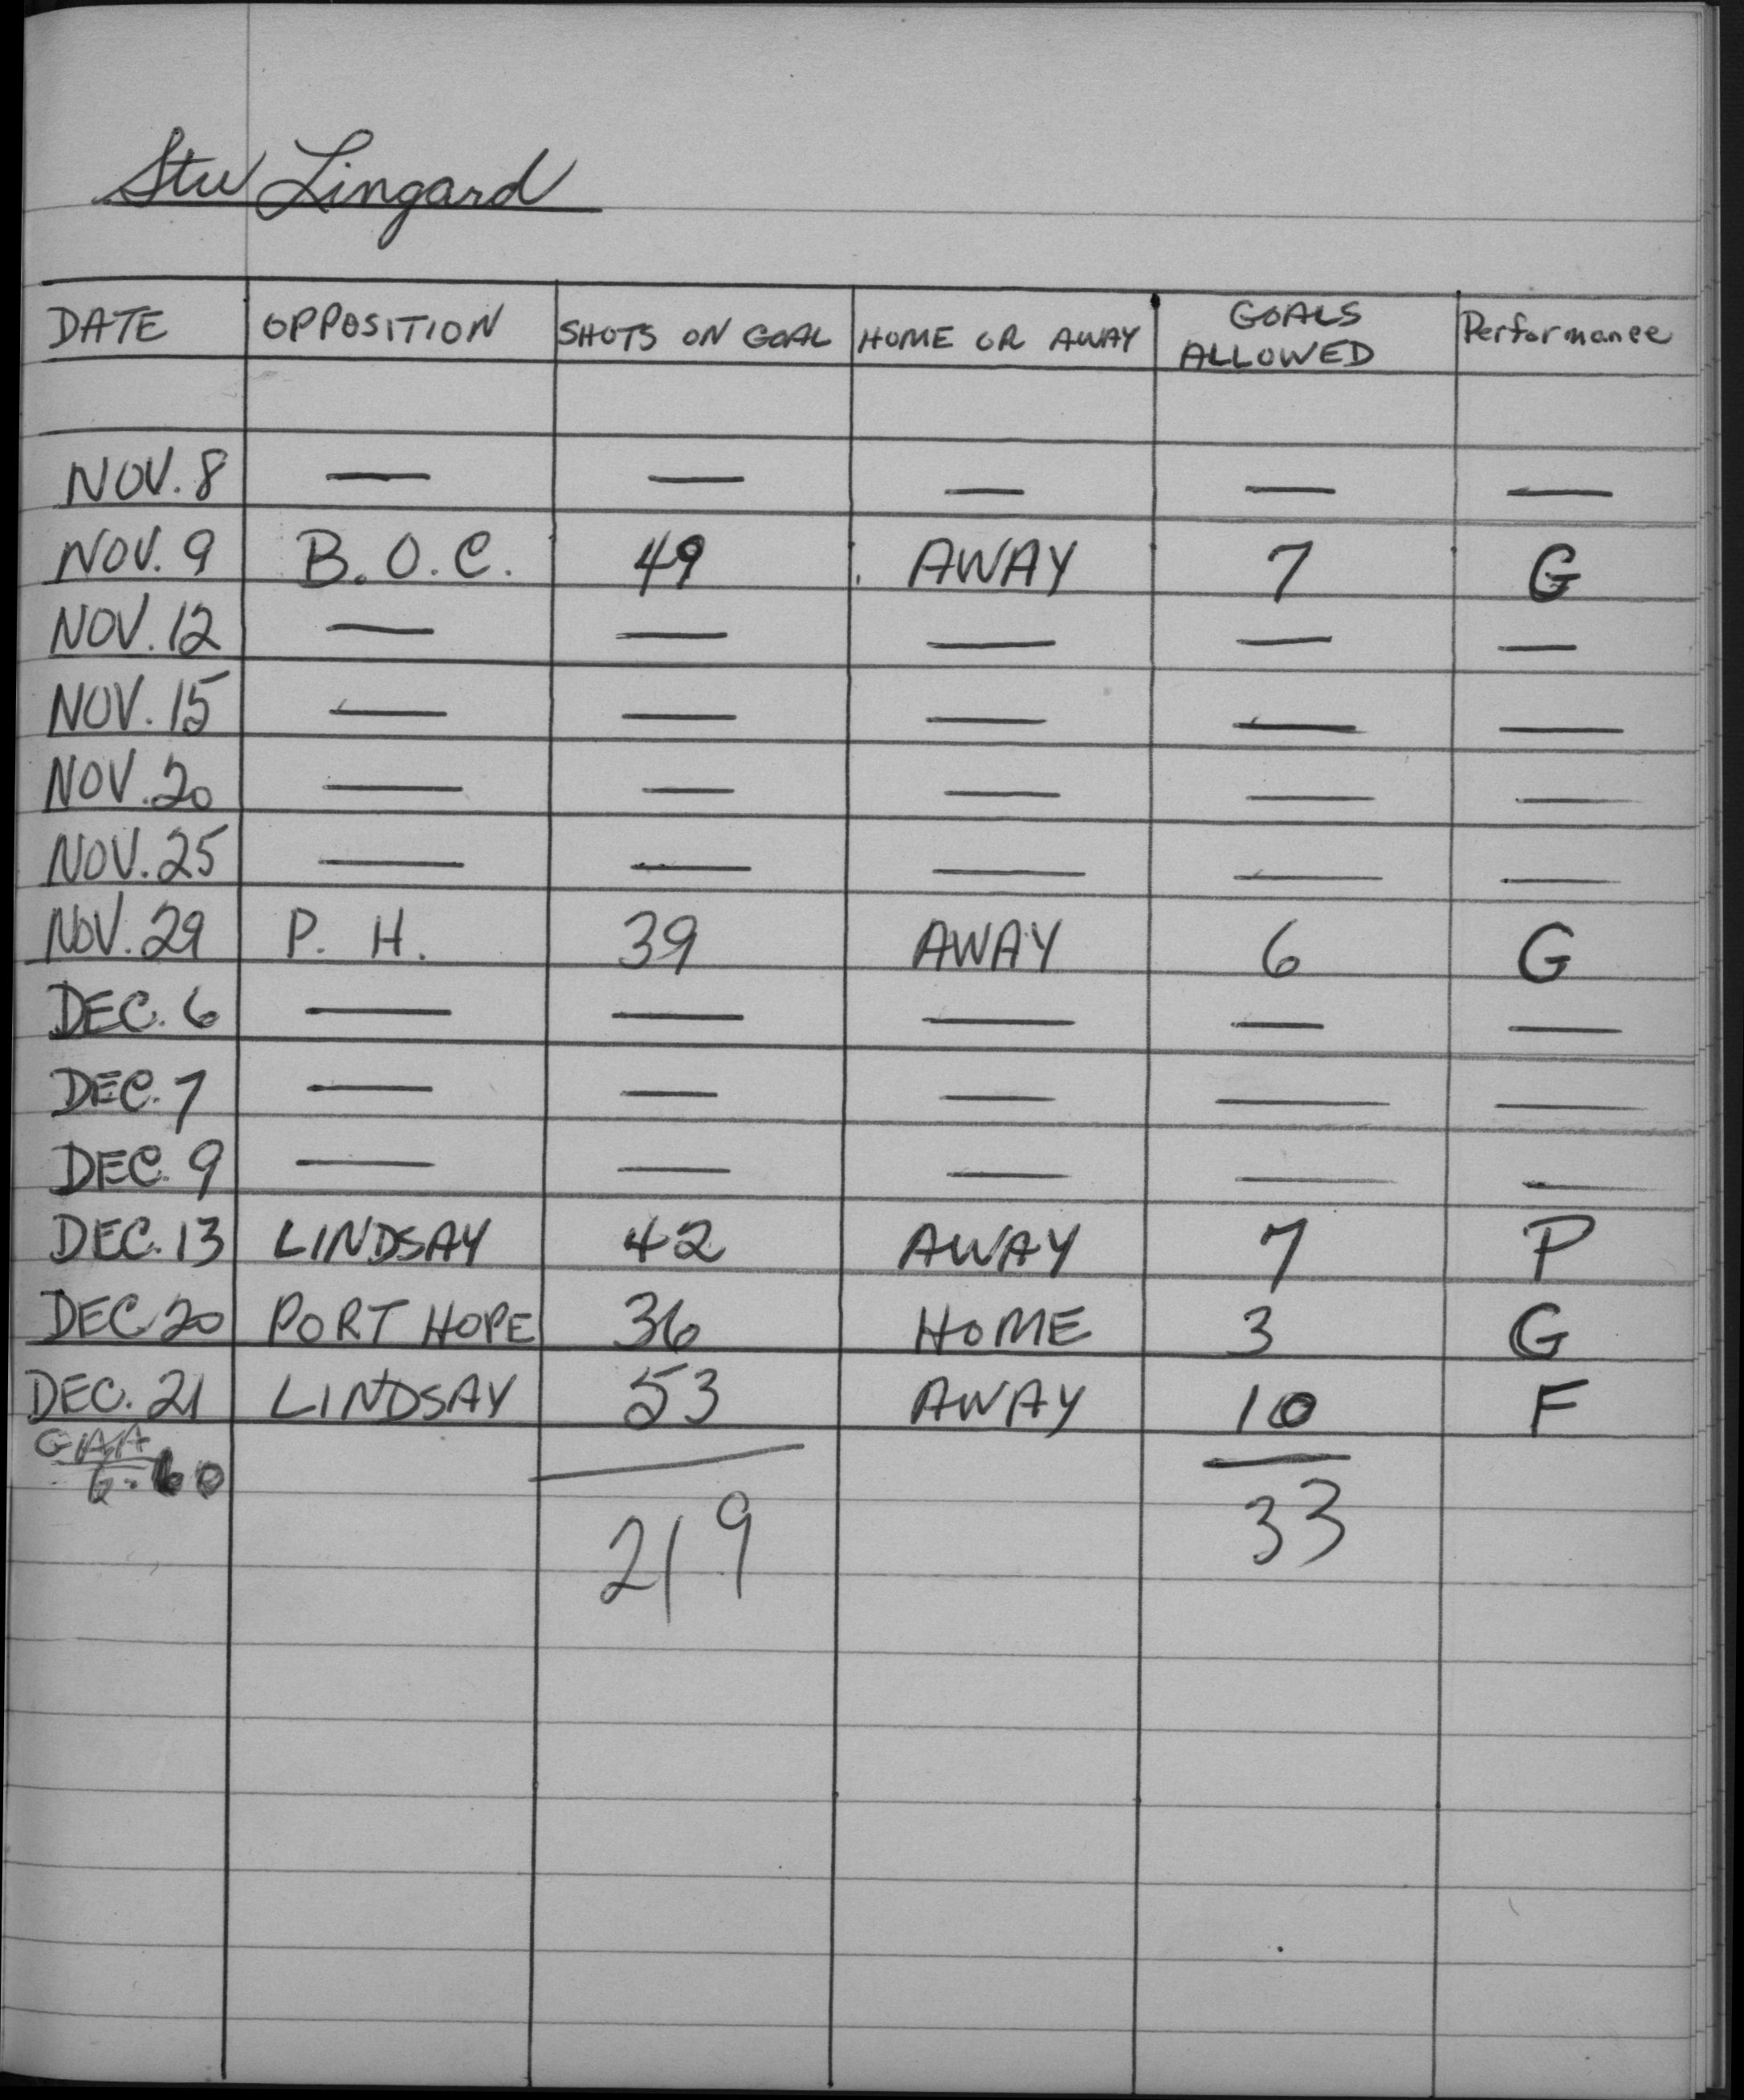 Stu Lingard
DATE OPPOSITION SHOTS ON GOAL HOME OR AWAY GOALS ALLOWED Performance
NOV. 8 — — — — —
NOV. 9 B.O.C. 49 AWAY 7 G
NOV. 12 — — — — —
NOV. 15 — — — — —
NOV. 20 — — — — —
NOV. 25 — — — — —
NOV. 29 P. H. 39 AWAY 6 G
DEC. 6 — — — — —
DEC. 7 — — — — —
DEC. 9 — — — — —
DEC. 13 LINDSAY 42 AWAY 7 P
DEC 20 PORT HOPE 36 HOME 3 G
DEC. 21 LINDSAY 53 AWAY 10 F
GAA
6.60
219 33